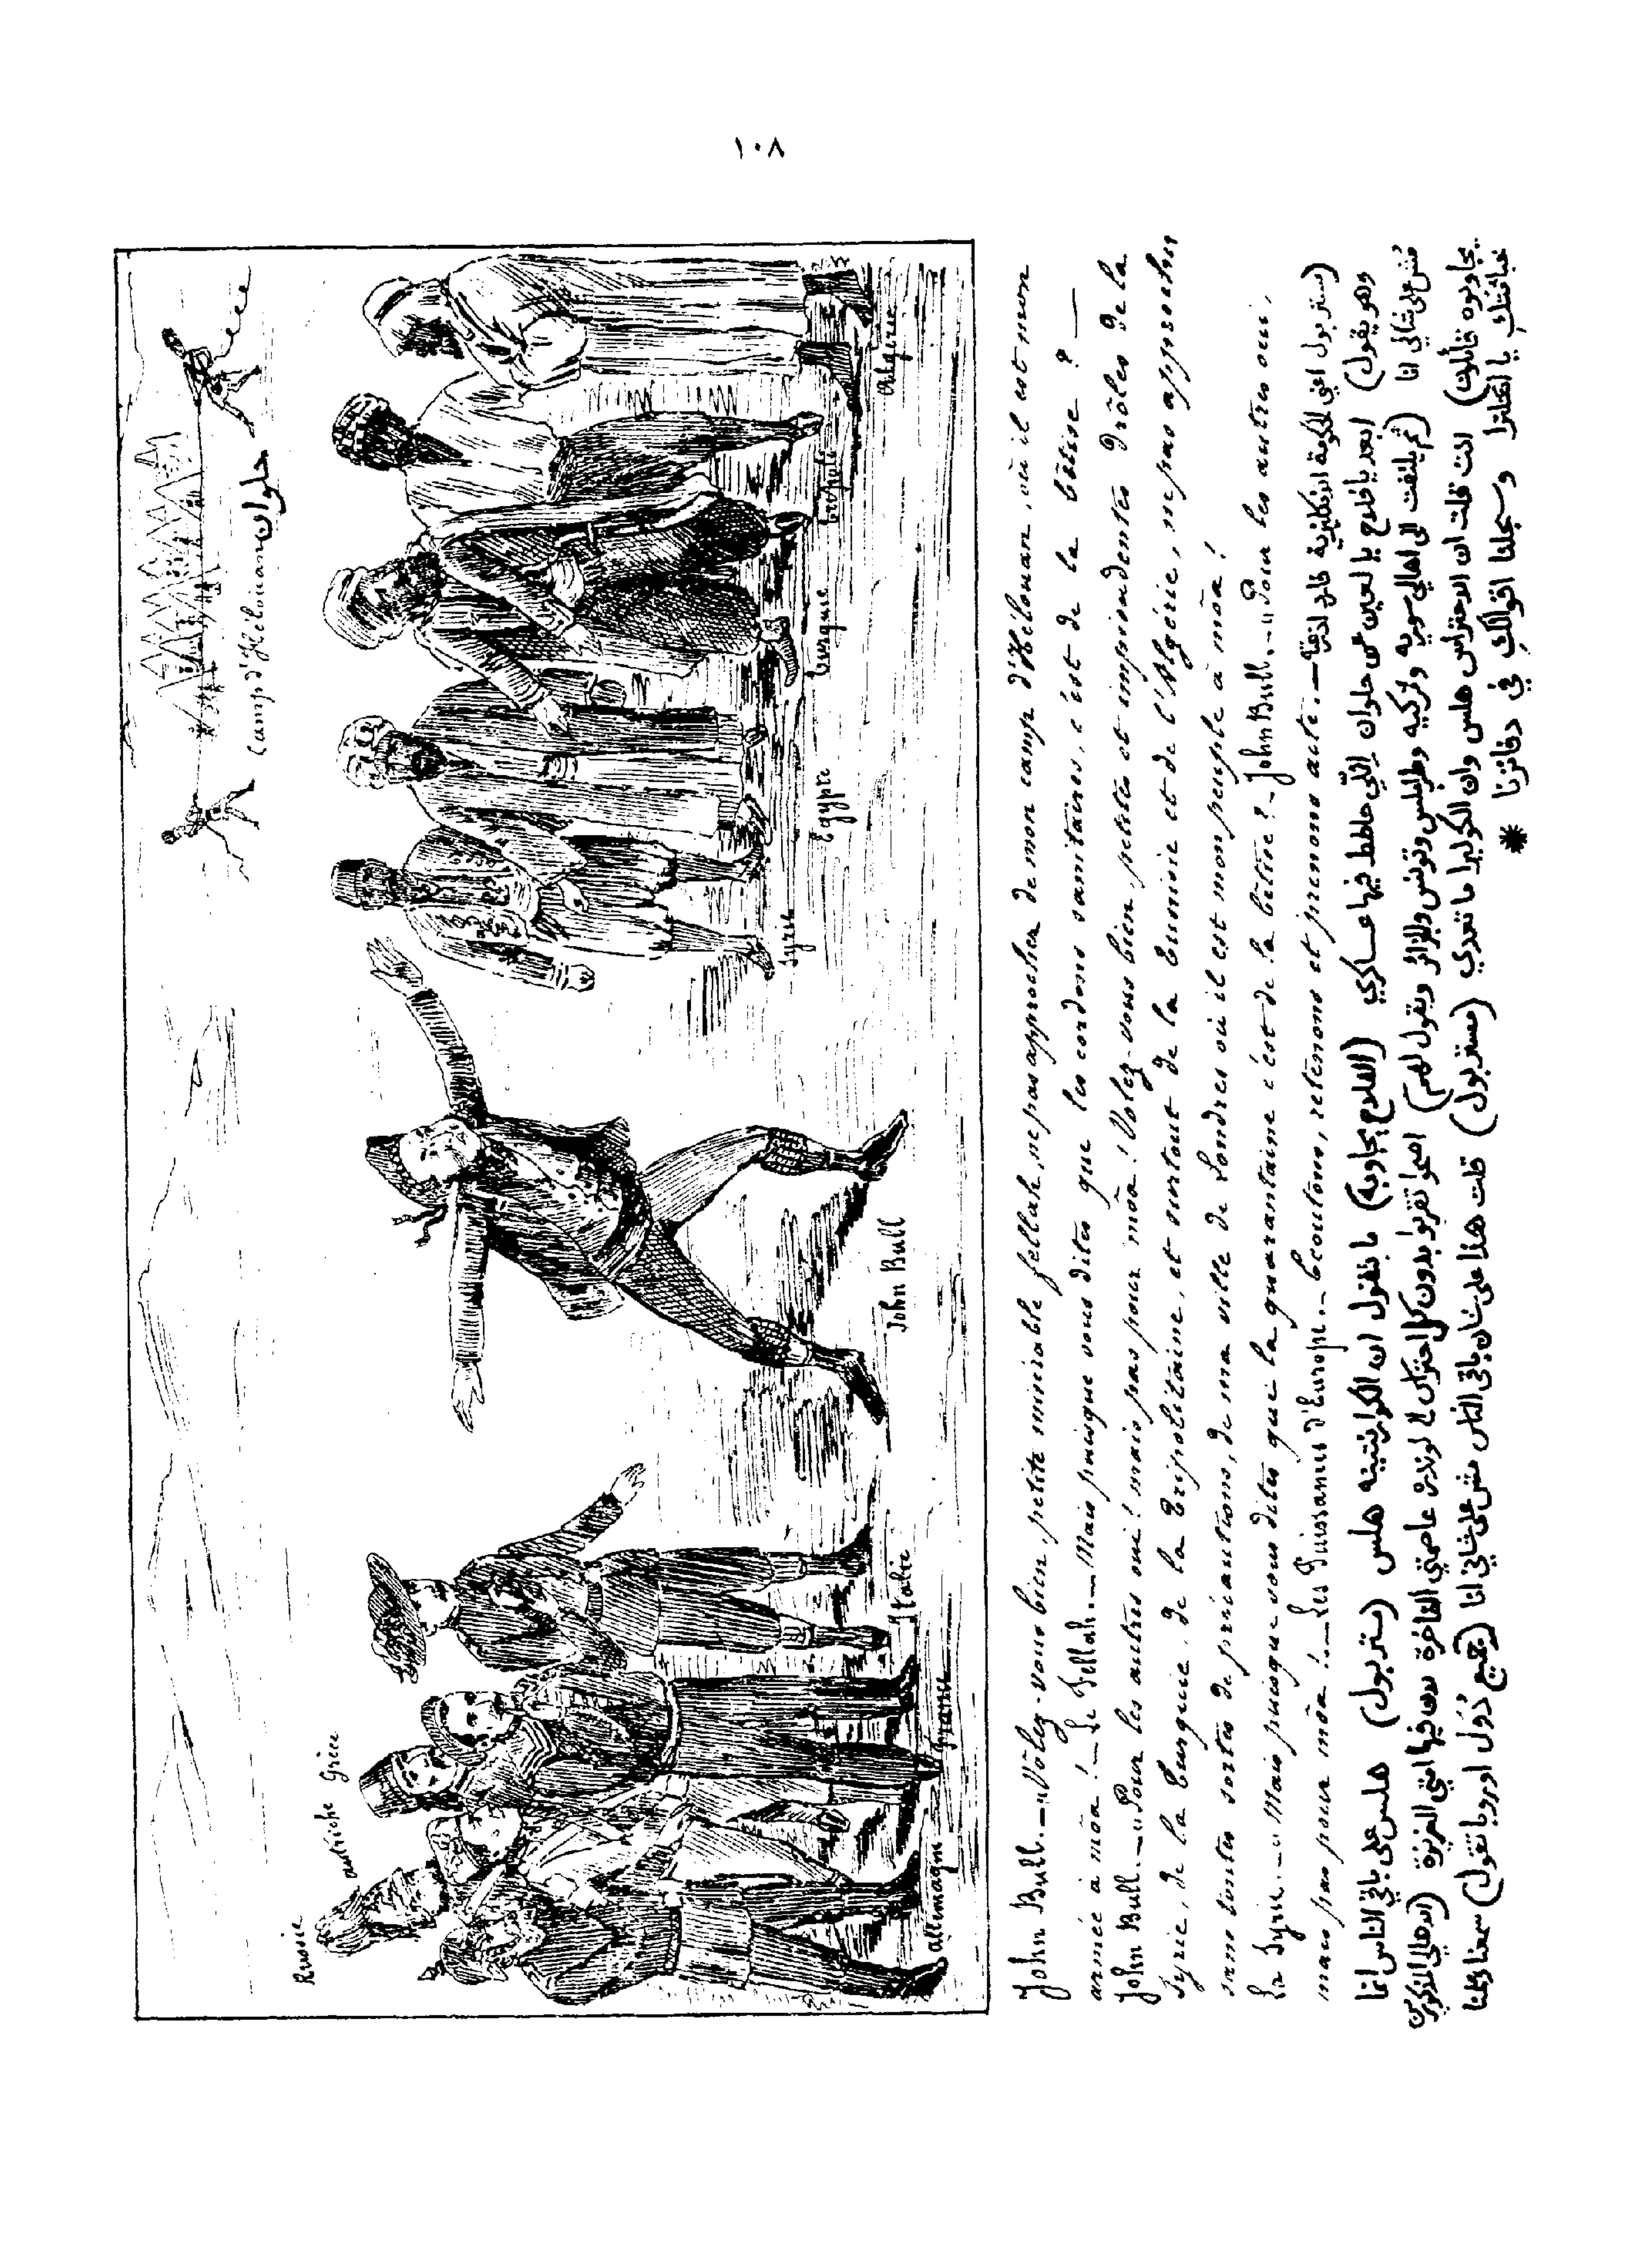 ١٠٨
Camp d'Hélouan حلوان
Russie
autriche
Grèce
allemagne
France
Italie
John Bull
Syrie
Egypte
Turquie
Tripoli
Algerie
John Bull. — "Voleg-vous bien, petite misérable fellah, ne pas approcher de mon camp d'Hélouan, où il est mon
armée à môa! — Le Fellah. — Mais puisque vous dites que les cordons sanitaires, c'est de la bêtise? —
John Bull. — "Pour les autres oui! mais pas pour môa! Voleg-vous bien, petites et imprudentes drôles de la
Syrie, de la Turquie, de la Tripolitaine, et surtout de la Tunisie et de l'Algérie, ne pas approcher
sans toutes sortes de précautions, de ma ville de Londres où il est mon peuple à môa!
La Syrie. — "Mais puisque vous dites que la quarantaine c'est de la bêtise? — John Bull. — "Pour les autres oui,
mais pas pour môa! — Les Puissances d'Europe. — Ecoutons, retenons et prenons acte. — (مستر بول اعني الحكومة الانكليزية
وهو يقول) ابعد يا فلاح يا لعين عن حلوان اللي حاطط فيها عساكري (الفلاح يجاوبه) ما بتقول ان الكورنتينه هلس (مستر بول) هلس على باقي الناس انما
مش على شاني انا (ثم يلتفت الى اهالي سوريه وتركيه وطرابلس وتونس والجزائر ويقول لهم) اصحوا تقربوا بدون كل احتراس لوندره عاصمتي الفاخرة فيها امتي العزيزة (الاهالي المذكورين
يجاوبوه قائلين) انت قلت ان الاحتراس هلس وان الكوليرا ما تعدي (مستر بول) قلت هذا على شان باقي الناس مش على شاني انا (جميع دُوَل اوروبا تقول) سمعنا
يا انجلترا وسجلنا اقوالك في دفاترنا *